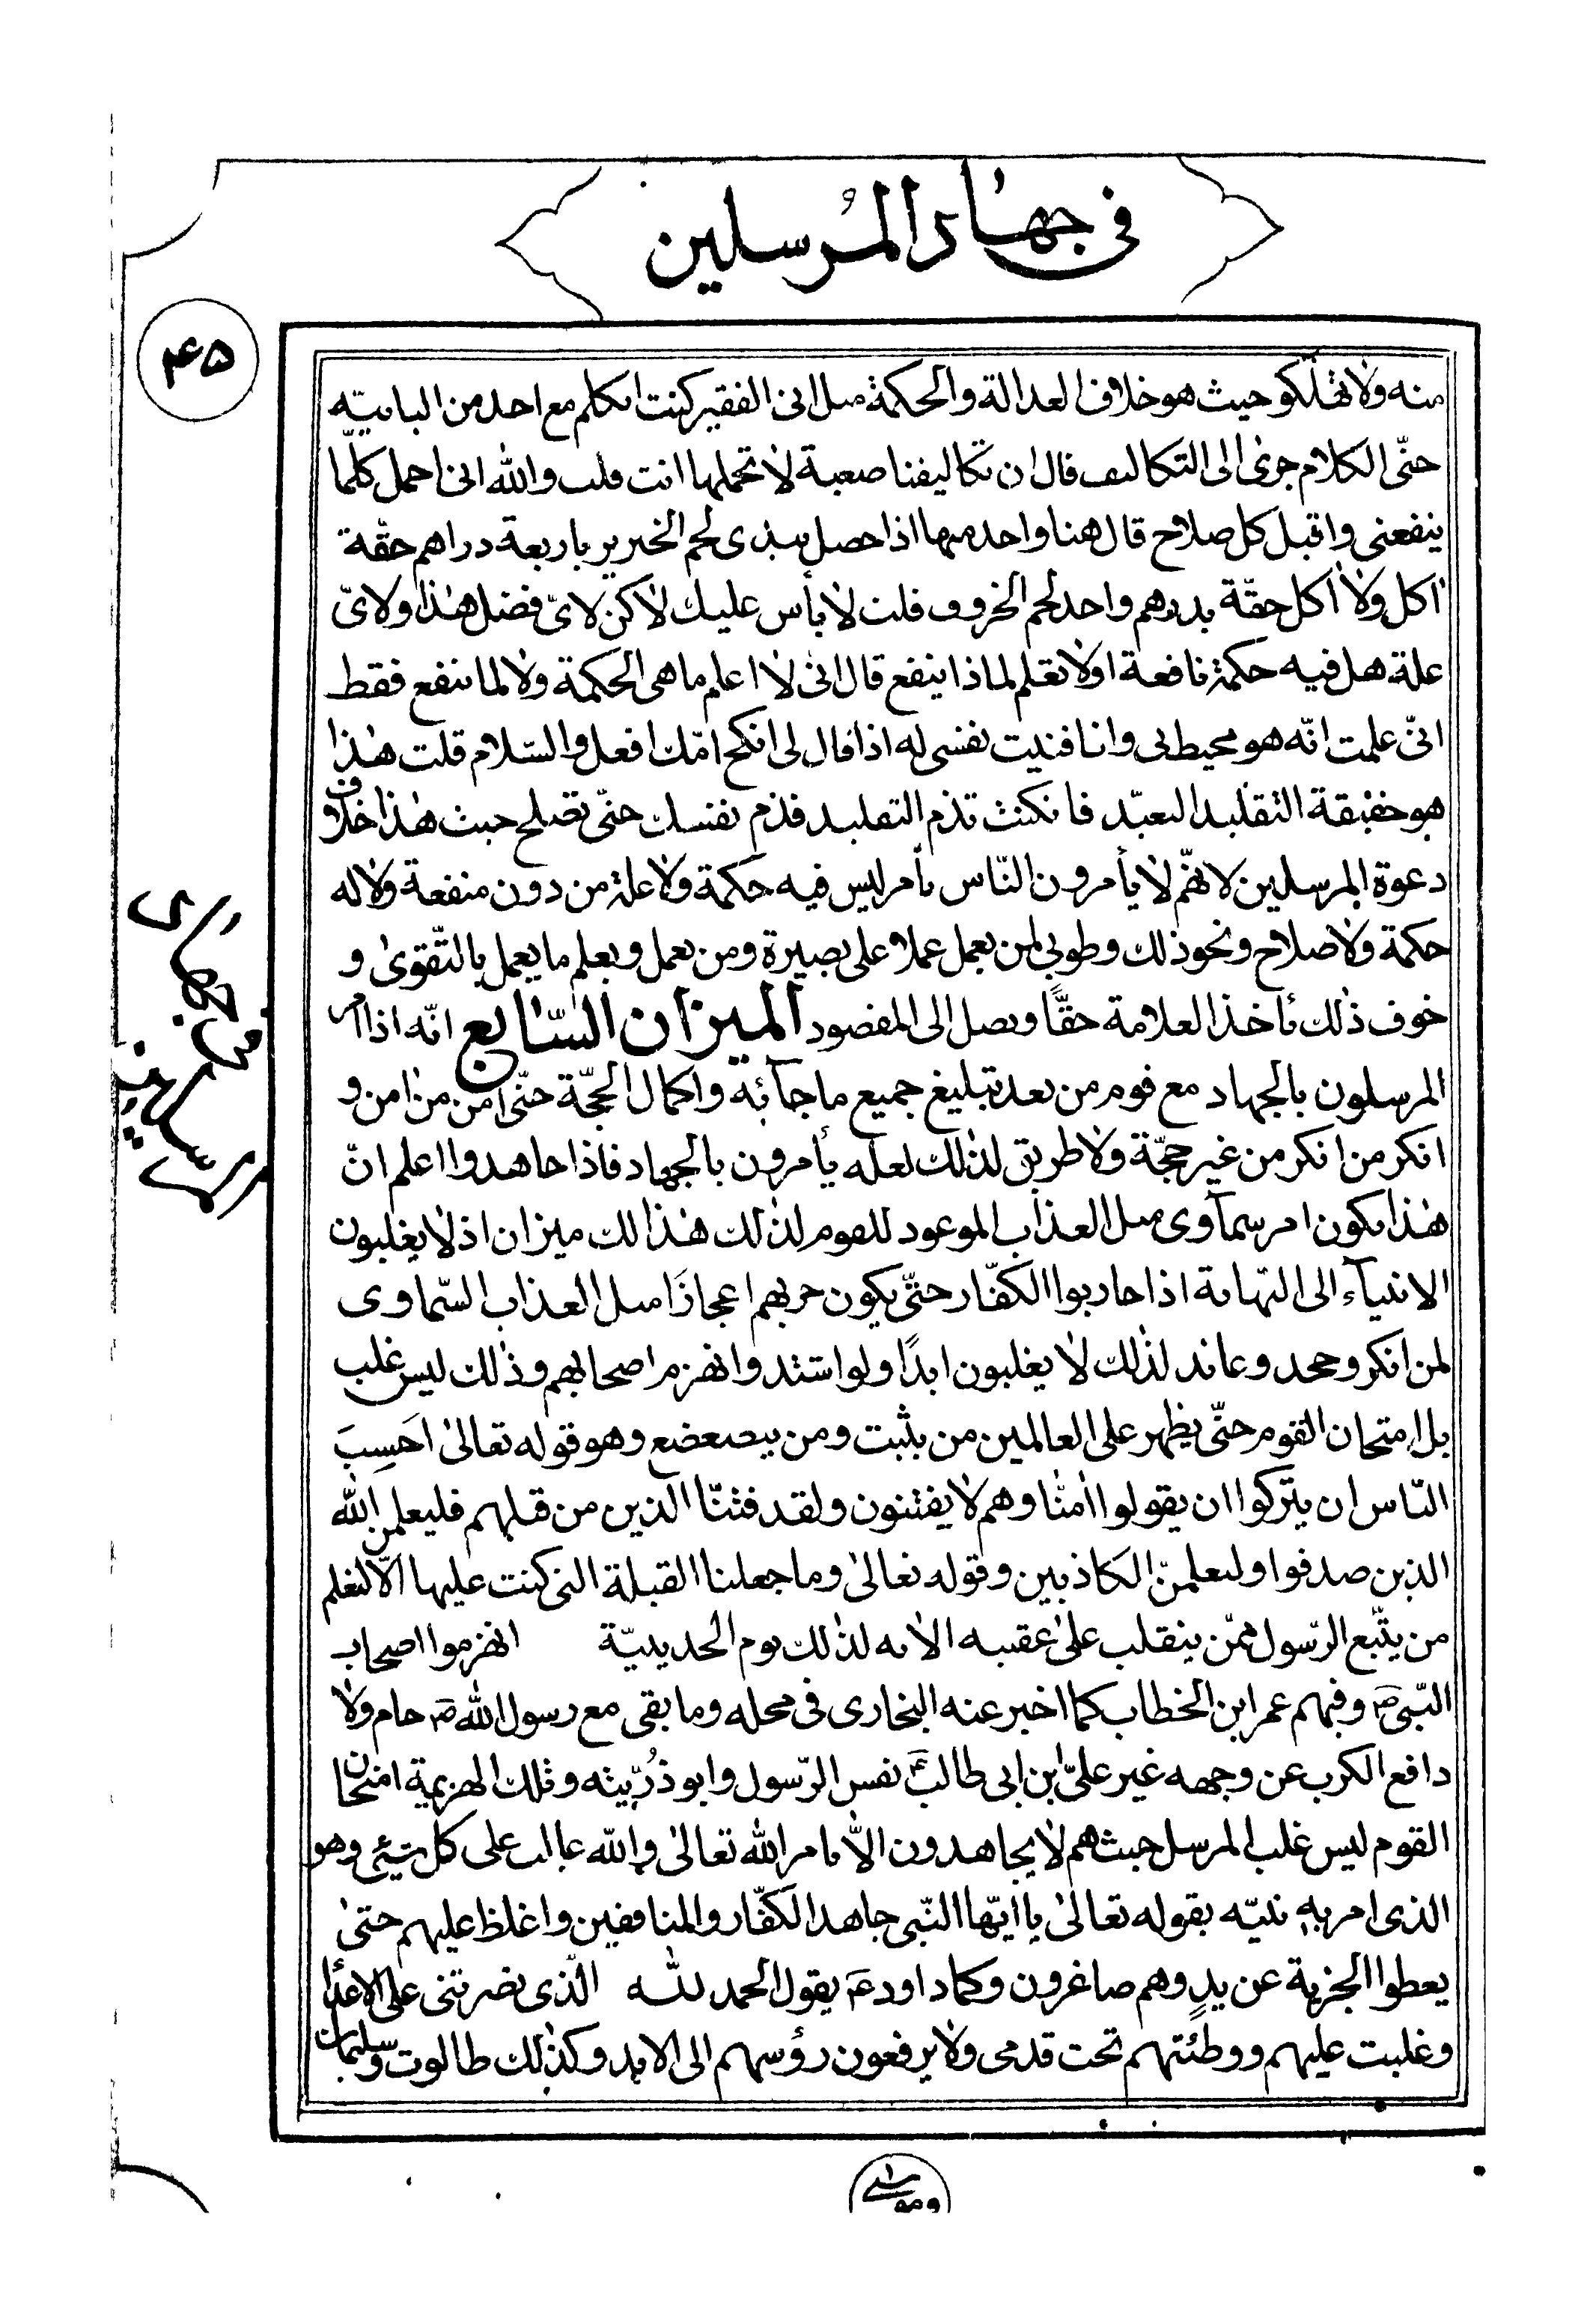 فی جهاد المرسلین
۴۵
منه ولا تهلكو حيث هو خلاف العدالة والحكمة مثل انی الفقير كنت اتكلم مع احد من البابيّه
حتّى الكلام جرى الى التكاليف قال ان تكاليفنا صعبة لا تحملها انت قلت والله انی احمل كلّما
ينفعنی واقبل كل صلاح قال هنا واحد منها اذا حصل بيدی لحم الخنزير باربعة دراهم حقّة
اٰكل ولا اٰكل حقّة بدرهم واحد لحم الخروف قلت لا بأس عليك لاكن لایّ فضل هٰذا ولایّ
علة هل فيه حكمة نافعة اولا تعلم لماذا ينفع قال انی لا اعلم ما هی الحكمة ولا لما تنفع فقط
انیّ علمت انّه هو محيط بی وانا فنيت نفسی له اذا قال لی انكح امّك افعل والسّلام قلت هٰذا
هو حقيقة التقليد التعبّد فان كنت تذم التقليد فذم نفسك حتّى تصلح حيث هٰذا خلاف
دعوة المرسلين لانهّم لا يأمرون النّاس بأمر ليس فيه حكمة ولا علة من دون منفعة ولا له
حكمة ولا صلاح ونحو ذلك وطوبی لمن يعمل عملا على بصيرة ومن يعمل ويعلم ما يعمل بالتّقوىٰ و
خوف ذٰلك يأخذ العلامة حقًّا ويصل الى المقصود الميزان السّابع انّه اذا امر
المرسلون بالجهاد مع قوم من بعد تبليغ جميع ما جآئه واكمال الحجّة حتّى اٰمن من اٰمن و
انكر من انكر من غير حجّة ولا طريق لذٰلك لعله يأمرون بالجهاد فاذا جاهدوا اعلم انّ
هٰذا يكون امر سمآوی مثل العذاب الموعود للقوم لذٰلك هٰذا لك ميزان اذ لا يغلبون
الانبيآء الى النهاية اذا حاربوا الكفّار حتّى يكون حربهم اعجازًا مثل العذاب السّماوی
لمن انكر وجحد وعاند لذٰلك لا يغلبون ابدًا ولو استد وانهزم اصحابهم وذٰلك ليس غلب
بل امتحان القوم حتّى يظهر على العالمين من يثبت ومن يتضعضع وهو قوله تعالىٰ اَحَسِبَ
النّاس ان يتركوا ان يقولوا اٰمنّا وهم لا يفتنون ولقد فتنّا الذين من قبلهم فليعلمن الله
الذين صدقوا وليعلمنّ الكاذبين وقوله تعالىٰ وما جعلنا القبلة التی كنت عليها الّا لنعلم
من يتّبع الرّسول ممّن ينقلب علىٰ عقبيه الايه لذٰلك يوم الحديبيّة انهزموا اصحاب
النّبی ص وفيهم عمر ابن الخطاب كما اخبر عنه البخاری فی محله وما بقی مع رسول الله ص حام ولا
دافع الكرب عن وجهه غير علیّ بن ابی طالب ع نفس الرّسول وابو ذرّيته وتلك الهزيمة امتحان
القوم ليس غلب المرسل حيث هم لا يجاهدون الاّ بامر الله تعالىٰ والله غالب على كل شیئ وهو
الذی امر به نبيّه بقوله تعالىٰ يا ايّها النّبی جاهد الكفّار والمنافقين واغلظ عليهم حتىٰ
يعطوا الجزية عن يدٍ وهم صاغرون وكما داود ع يقول الحمد لله الّذی نصرتنی على الاعدا
وغلبت عليهم ووطئتهم تحت قدمی ولا يرفعون رؤسهم الى الابد وكذٰلك طالوت وسليمان
وموسٰى